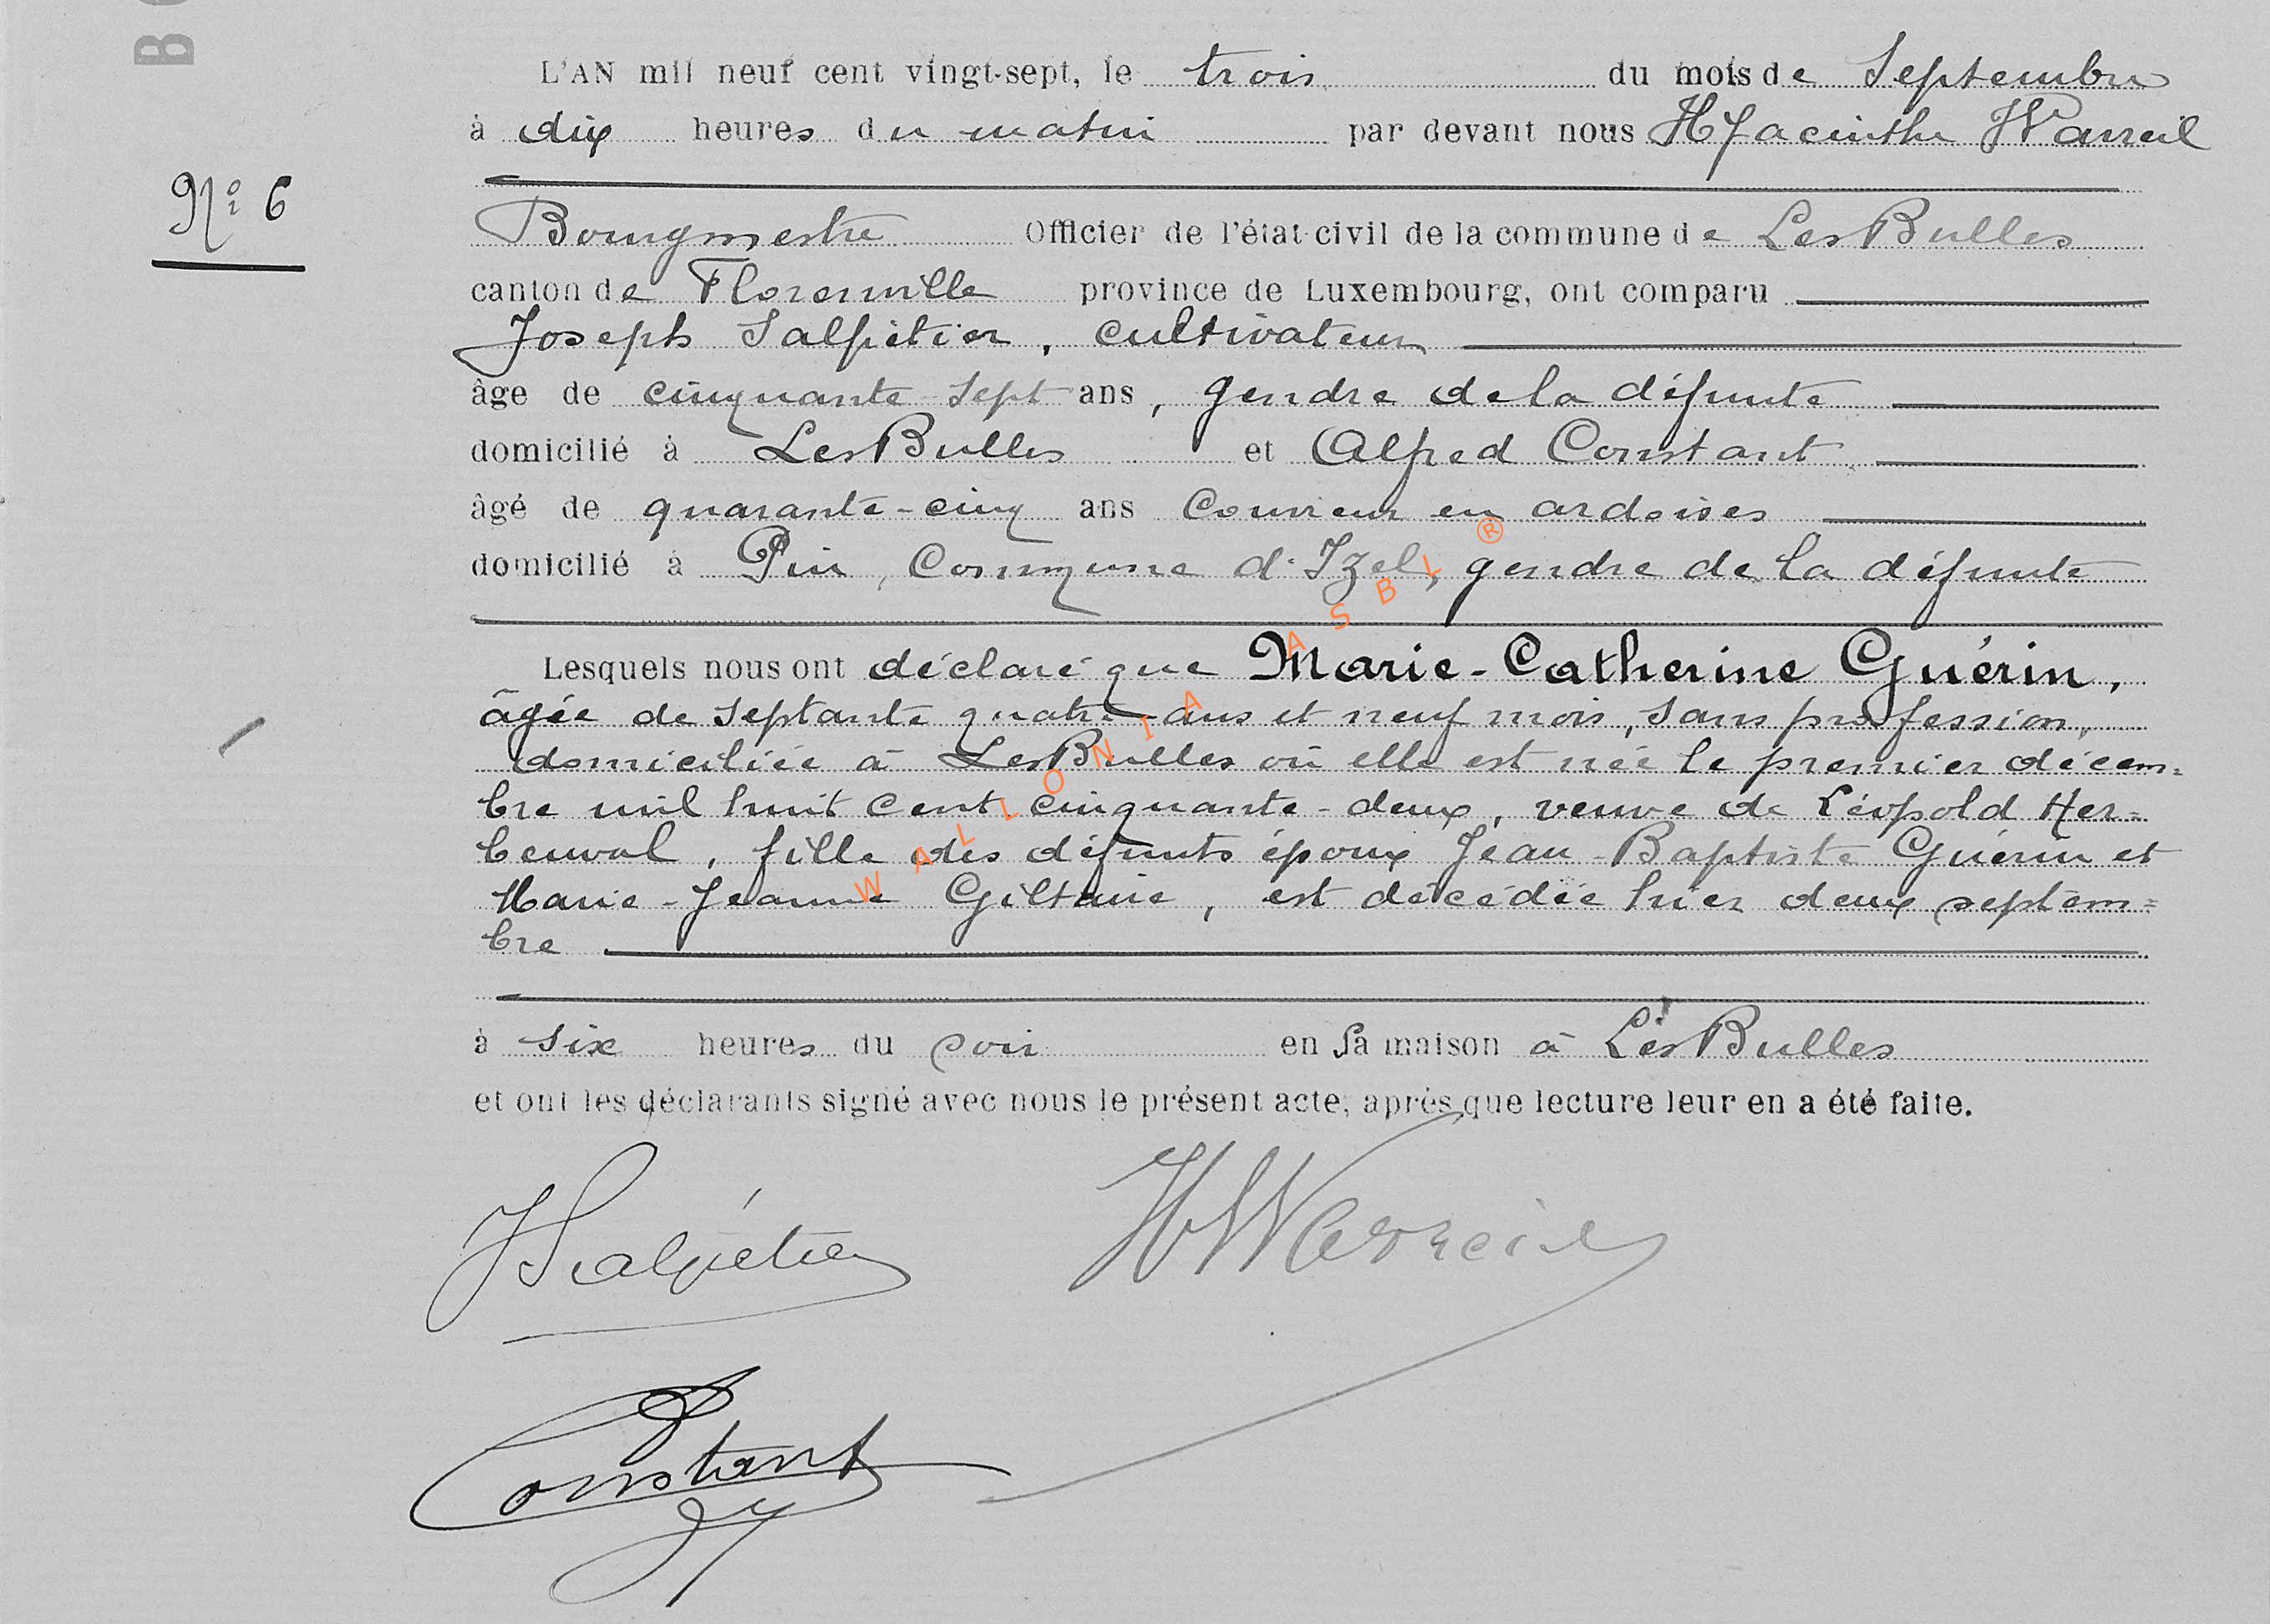 B
L'AN mil neuf cent vingt-sept, le trois du mois de Septembre
à dix heures du matin par devant nous Hyacinthe Warreil
N° 6
Bourgmestre Officier de l'état-civil de la commune de Les Bulles
canton de Florenville province de Luxembourg, ont comparu
Joseph Salpétier, cultivateur
âge de cinquante-sept ans, gendre de la défunte
domicilié à Les Bulles et Alfred Constant
âgé de quarante-cinq ans Couvreur en ardoises
domicilié à Pin, Commune d'Izel, gendre de la défunte
Lesquels nous ont déclaré que Marie-Catherine Guérin,
âgée de septante quatre ans et neuf mois, sans profession,
domiciliée à Les Bulles où elle est née le premier décem=
bre mil huit cent cinquante-deux, veuve de Léopold Her=
beuval, fille des défunts époux Jean-Baptiste Guérin et
Marie-Jeanne Giltaire, est décédée hier deux septem=
bre
à six heures du soir en sa maison à Les Bulles
et ont les déclarants signé avec nous le présent acte, après que lecture leur en a été faite.
JSalpétier HWarreil
Constant
WALLONIA ASBL ®